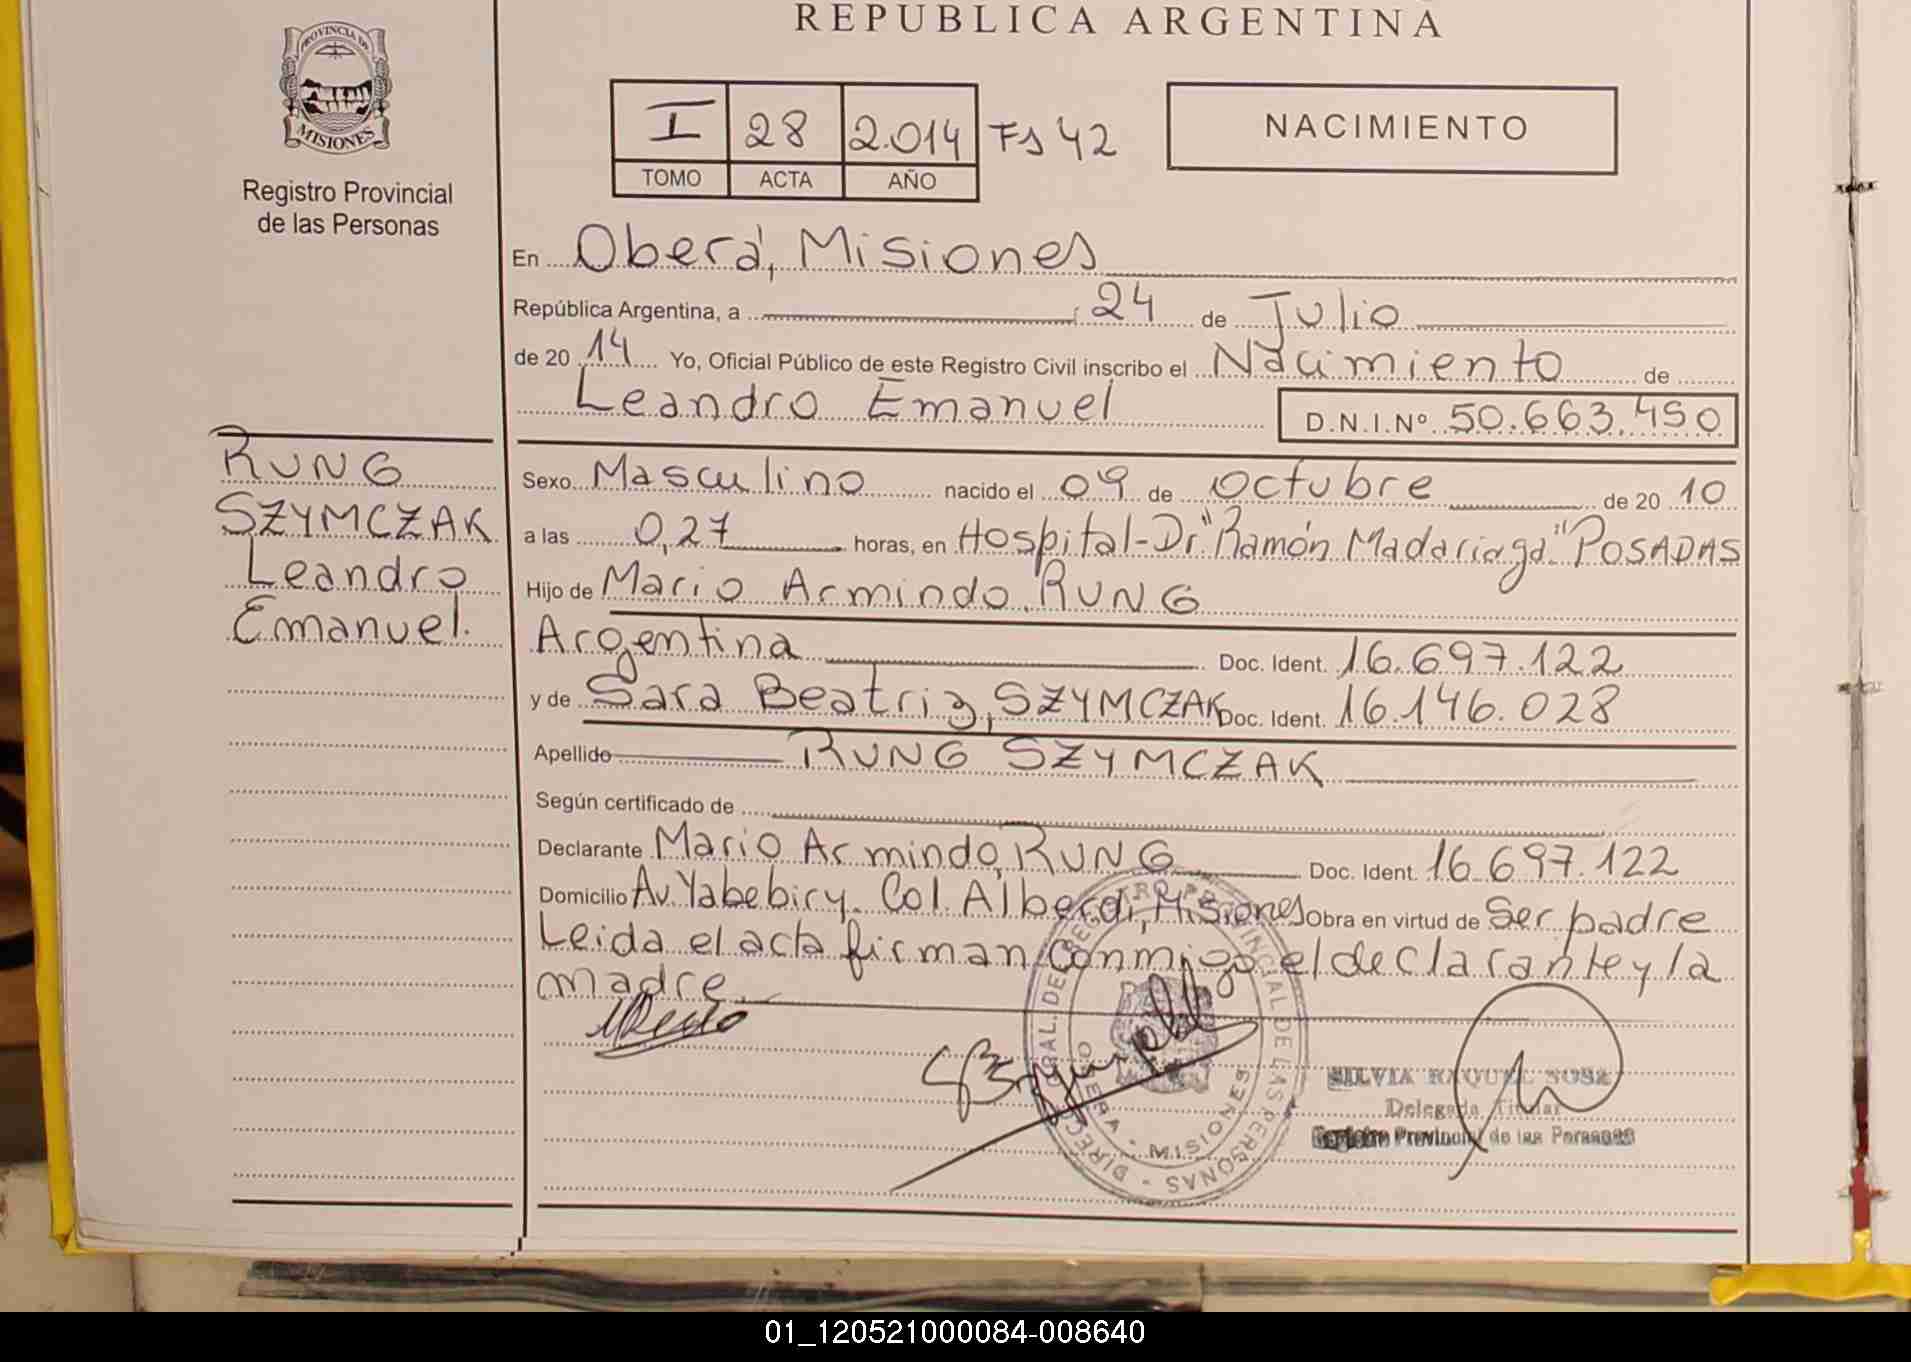 REPUBLICA ARGENTINA
PROVINCIA DE
MISIONES
Registro Provincial
de las Personas
I 28 2.014 Fs 42
TOMO ACTA AÑO
NACIMIENTO
En Oberá, Misiones
República Argentina, a 24 de Julio
de 20 14 Yo, Oficial Público de este Registro Civil inscribo el Nacimiento de
Leandro Emanuel D.N.I.Nº 50.663.450
RUNG
SZYMCZAK
Leandro
Emanuel.
Sexo Masculino nacido el 09 de Octubre de 20 10
a las 0,27 horas, en Hospital-Dr "Ramón Madariaga" POSADAS
Hijo de Mario Armindo RUNG
Argentina Doc. Ident. 16.697.122
y de Sara Beatriz, SZYMCZAK Doc. Ident. 16.146.028
Apellido RUNG SZYMCZAK
Según certificado de
Declarante Mario Armindo, RUNG Doc. Ident. 16.697.122
Domicilio Av. Yabebiry. Col. Alberdi, Misiones Obra en virtud de Ser padre
Leida el acta firman conmigo el declarante y la
madre.
DIRECC. GRAL. DEL REGISTRO PROVINCIAL DE LAS PERSONAS
OBERA - MISIONES
SILVIA RAQUEL SOSA
Delegada Titular
Registro Provincial de las Personas
01_120521000084-008640